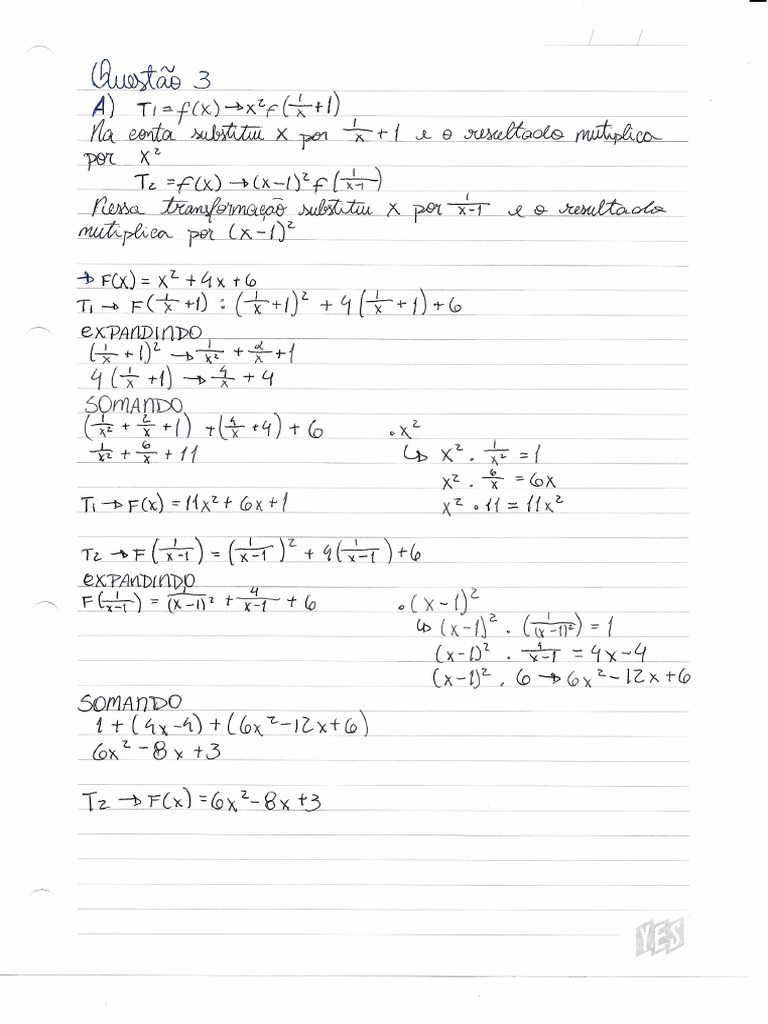 Questão 3
A) T1 = f(x) → x² f(1/x + 1)
Na conta substitui x por 1/x + 1 e o resultado mutiplica
por x²
T2 = f(x) → (x-1)² f(1/x-1)
Nessa transformação substitui x por 1/x-1 e o resultado
mutiplica por (x-1)²
→ F(x) = x² + 4x + 6
T1 → F(1/x + 1) : (1/x + 1)² + 4(1/x + 1) + 6
EXPANDINDO
(1/x + 1)² → 1/x² + 2/x + 1
4(1/x + 1) → 4/x + 4
SOMANDO
(1/x² + 2/x + 1) + (4/x + 4) + 6
1/x² + 6/x + 11
• x²
↳ x² . 1/x² = 1
x² . 6/x = 6x
x² • 11 = 11x²
T1 → F(x) = 11x² + 6x + 1
T2 → F(1/x-1) = (1/x-1)² + 4(1/x-1) + 6
EXPANDINDO
F(1/x-1) = 1/(x-1)² + 4/x-1 + 6
• (x-1)²
↳ (x-1)² . (1/(x-1)²) = 1
(x-1)² . 4/x-1 = 4x-4
(x-1)² . 6 → 6x² - 12x + 6
SOMANDO
1 + (4x-4) + (6x² - 12x + 6)
6x² - 8x + 3
T2 → F(x) = 6x² - 8x + 3
YES